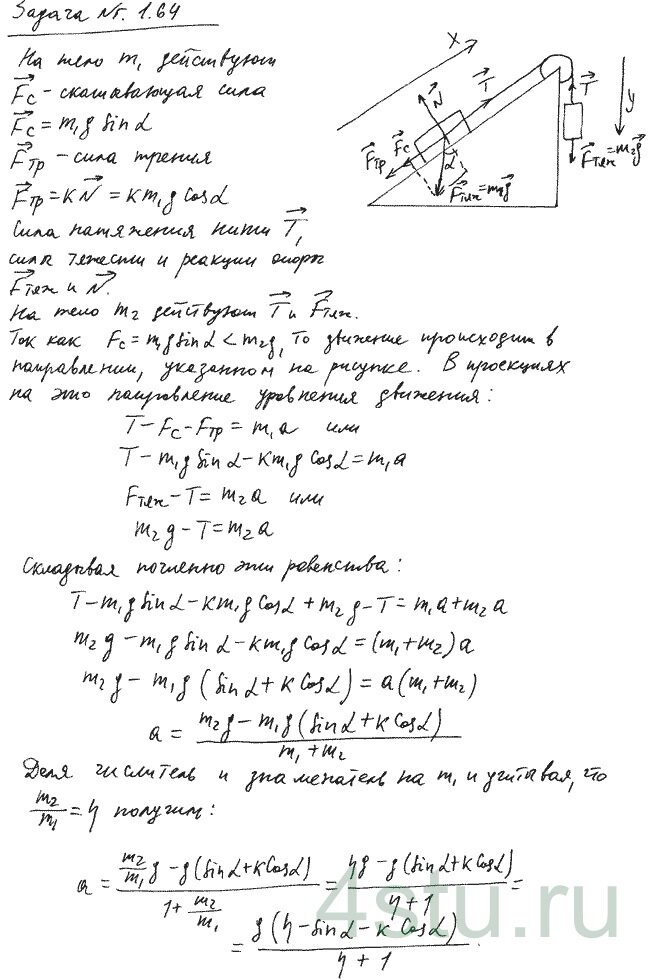 Задача № 1.64
На тело m₁ действуют
F⃗с - скатывающая сила
F⃗с = m₁g sinα
F⃗тр - сила трения
F⃗тр = kN⃗ = km₁g cosα
Сила натяжения нити T⃗,
сила тяжести и реакции опоры
F⃗тяж и N⃗.
На тело m₂ действуют T⃗ и F⃗тяж.
Так как Fс = m₁g sinα < m₂g, то движение происходит в
направлении, указанном на рисунке. В проекциях
на это направление уравнения движения:
T - Fс - Fтр = m₁a или
T - m₁g sinα - km₁g cosα = m₁a
Fтяж - T = m₂a или
m₂g - T = m₂a
Складывая почленно эти равенства:
T - m₁g sinα - km₁g cosα + m₂g - T = m₁a + m₂a
m₂g - m₁g sinα - km₁g cosα = (m₁ + m₂)a
m₂g - m₁g (sinα + k cosα) = a(m₁ + m₂)
a = (m₂g - m₁g(sinα + k cosα)) / (m₁ + m₂)
Деля числитель и знаменатель на m₁ и учитывая, что
m₂/m₁ = η получим:
a = (m₂/m₁ g - g(sinα + k cosα)) / (1 + m₂/m₁) = (ηg - g(sinα + k cosα)) / (η + 1) =
= g(η - sinα - k cosα) / (η + 1).
X
N⃗
T⃗
F⃗с
F⃗тр
α
F⃗тяж = m₁g⃗
T⃗
y
F⃗тяж = m₂g⃗
4stu.ru